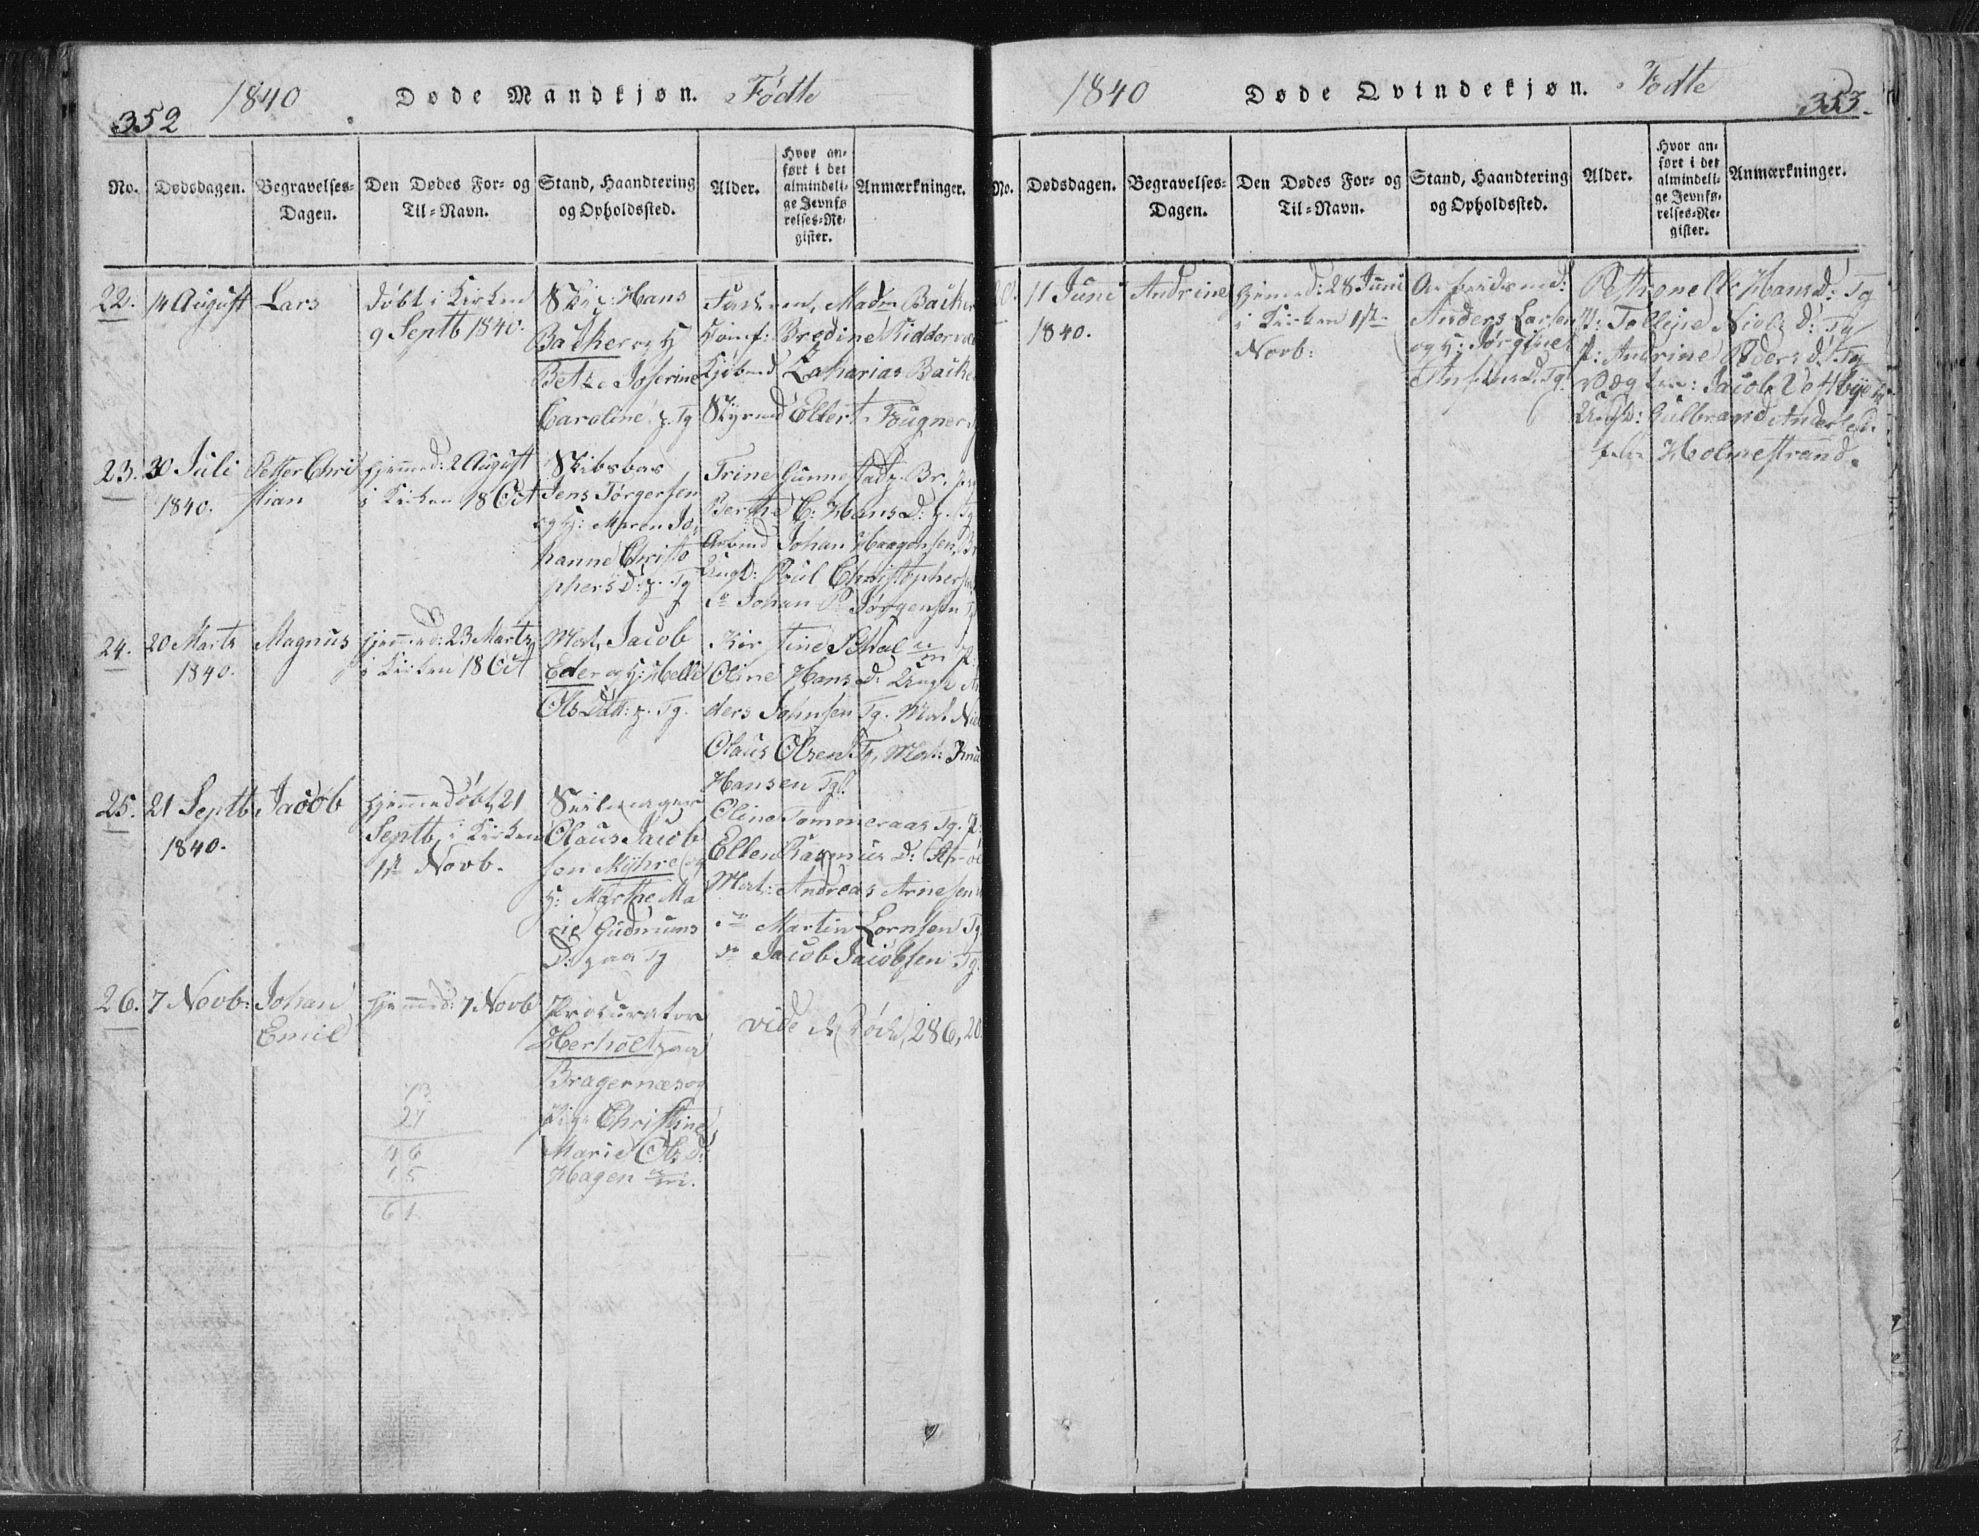 352
1840
Døde Mandkjøn. Fødte
No.
Dødsdagen.
Begravelses-
Dagen.
Den Dødes For- og
Til-Navn.
Stand, Haandtering
og Opholdssted.
Alder.
Hvor an-
ført i det
almindeli-
ge Jevnfø-
relses-Re-
gister.
Anmærkninger.
22.
14 August
Lars
døbt i Kirken
9 Septb 1840.
Hans
Backer og H
Josefine
Caroline Tg
Madm Backer
Jomf: Bredine
Kjøbmd Zakarias Backer
Ellert Fougner
23.
30 Juli
1840.
Petter Chri
stian
hjemmed: 2 August
i Kirken 18 Oct
Skibsbas
Jens Jørgensen
og H: Maren Jo
hanne Christo
phers D: Tg
Trine Gunnestad Br.
Berthe C: Hans D: Tg
Arbmd Johan Haagensen
Ungk: Poul Christophersen
do Johan P Jørgensen Tg
24.
20 Martz
1840.
Magnus
hjemmed: 23 Martz
i Kirken 18 Oct
Mat. Jacob
Eder og H: Helle
Ols Datt: Tg.
Kirstine
Oline Hans D: Ungk An
ders Johnsen Tg. Mat. Niels
Olaus Olsen Tg, Mat:
Hansen Tg.
25.
21 Septb
1840.
Jacob
Hjemmedøbt 21
Septb, i Kirken
1st Novb.
Seilmager
Olaus Jacob
sen Myhre og
H: Marthe Ma
rie Gudmuns
D: paa Tg
Oline Tommeraas Tg. P:
Ellen Rasmus D:
Mat: Andreas Arnesen
do Martin Lornsen Tg
do Jacob Jacobsen Tg.
26.
7 Novb:
Johan
Emil
hjemmed: 7 Novb
Procurator
Herholt paa
Bragernæs og
Pige Christine
Marie Ols D:
Hagen
vide 286, 20.
73
27
46
15
61
1840
Døde Qvindekjøn. Fødte
353.
No.
Dødsdagen.
Begravelses-
Dagen.
Den Dødes For- og
Til-Navn.
Stand, Haandtering
og Opholdssted.
Alder.
Hvor an-
ført i det
almindeli-
ge Jevnfø-
relses-Re-
gister.
Anmærkninger.
11 Juni
1840.
Andrine
hjemmed: 28 Juni
i Kirken 1st
Novb:
Arbeidsmd:
Anders Larsen
og H: Jørgine
Tg.
Petronelle Hans D: Tg
P: Tollejne Niels D: Tg
P: Andrine Peders D: Tg
Jacob Vestbye
Ungk: Gulbrand Anders
Holmestrand.